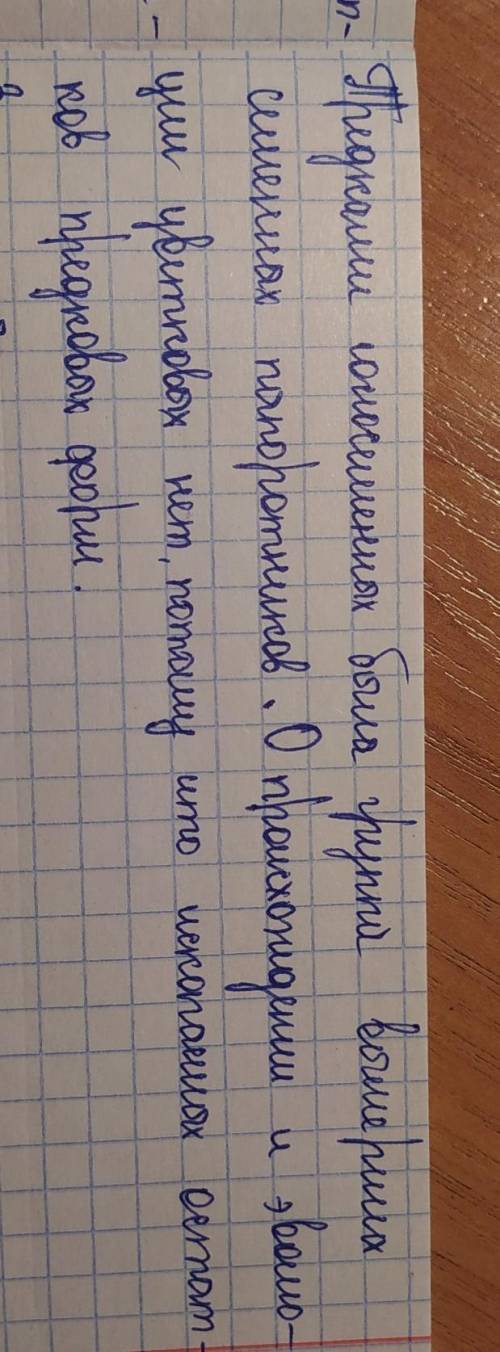 Предками голосеменных была группа вымерших
семенных папоротников. О происхождении и эволю-
ции цветковых нет, потому что ископаемых остат-
ков предковых форм.